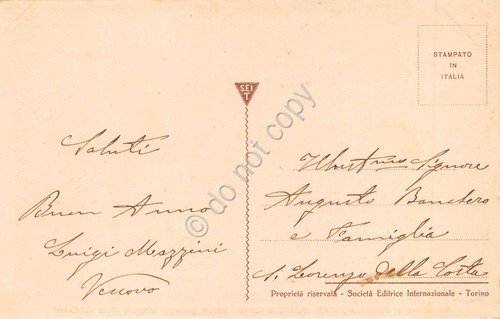 STAMPATO
IN
ITALIA
SEI
T.
Saluti
Buon Anno
Luigi Mazzini
Vescovo
Illustrmo Signore
Augusto Banchero
e Famiglia
S. Lorenzo della Costa
Proprietà riservata - Società Editrice Internazionale - Torino
do not copy